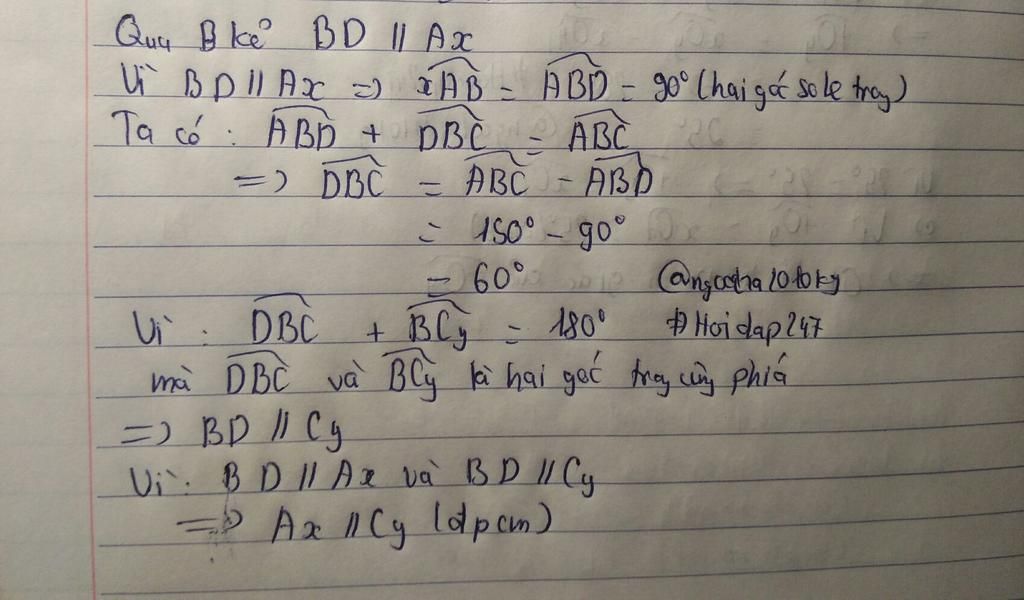 Qua B kẻ BD // Ax
Vì BD // Ax => xAB = ABD = 90° (hai góc so le trong)
Ta có : ABD + DBC = ABC
=> DBC = ABC - ABD
= 150° - 90°
= 60° @ngocha10toky
Vì : DBC + BCy = 180° #Hoidap247
mà DBC và BCy là hai góc trong cùng phía
=> BD // Cy
Vì : BD // Ax và BD // Cy
=> Ax // Cy (đpcm)